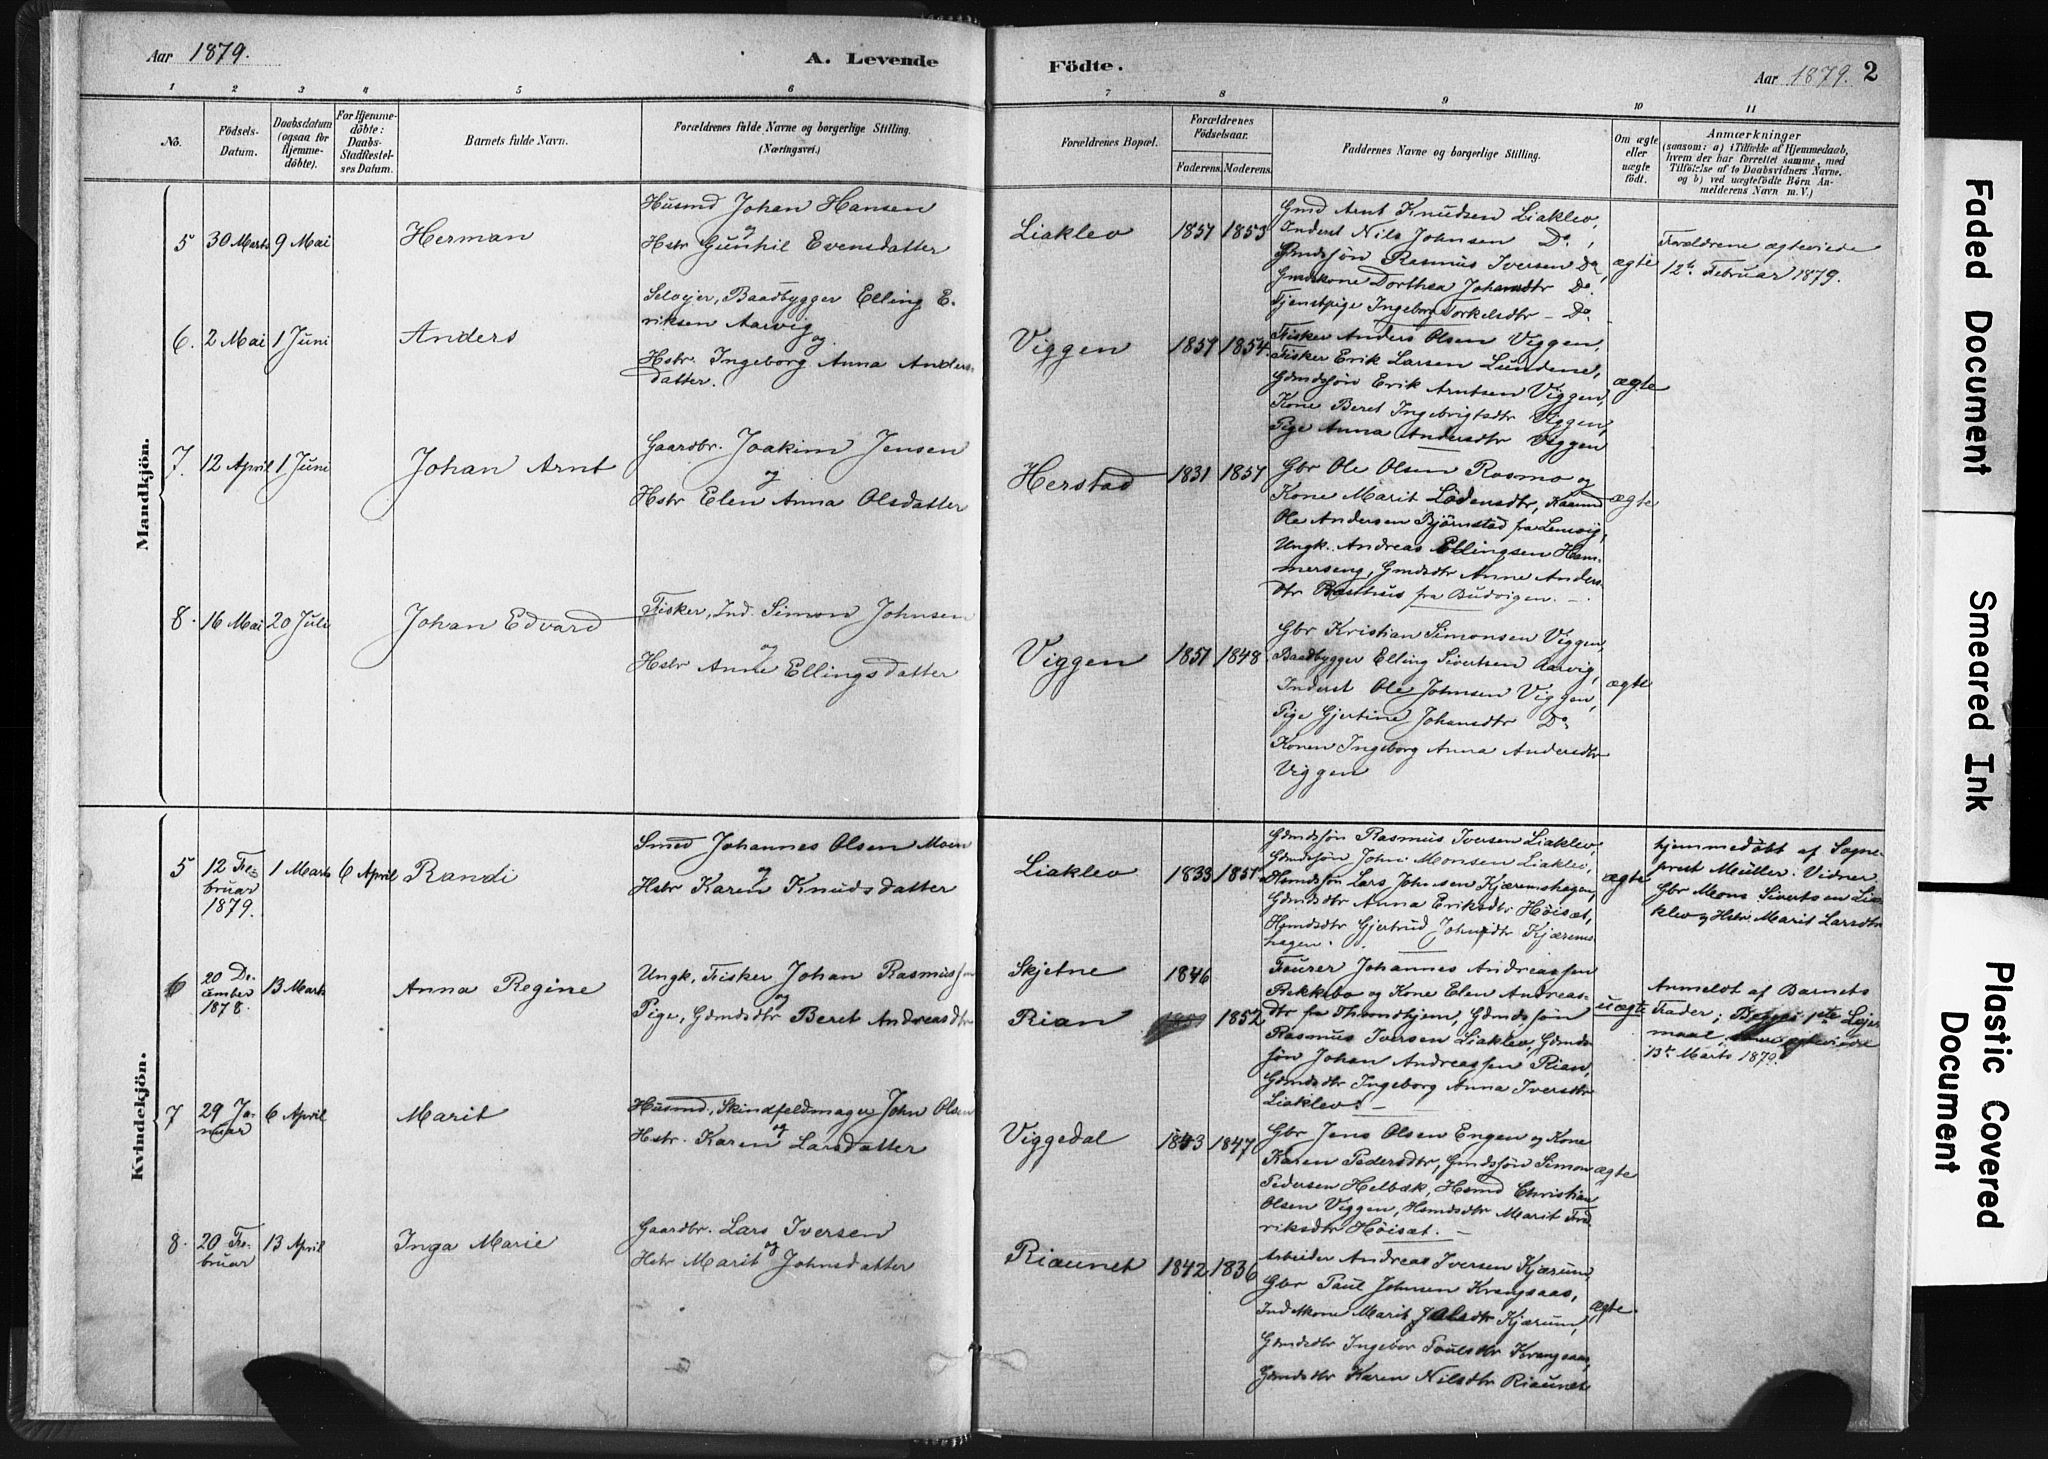 Aar 1879.
A. Levende
Födte.
Aar 1879. 2
1 2 3 4 5 6 7 8 9 10 11
No.
Födsels-
Datum.
Daabsdatum
(ogsaa for
Hjemme-
döbte).
For Hjemme-
döbte:
Daabs-
Stadfæstel-
ses Datum.
Barnets fulde Navn.
Forældrenes fulde Navne og borgerlige Stilling.
(Næringsvei.)
Forældrenes Bopæl.
Forældrenes
Födselsaar.
Faderens. Moderens.
Faddernes Navne og borgerlige Stilling.
Om ægte
eller
uægte
födt.
Anmærkninger
(saasom: a) i Tilfælde af Hjemmedaab,
hvem der har forrettet samme, med
Tilföielse af to Daabsvidners Navne.
og b) ved uægtefödte Börn An-
melderens Navn m. V.)
Mandkjön.
5 30 Marts 9 Mai Herman
Husmd Johan Hansen
og
Hstr Gunhil Evensdatter
Liaklev 1857 1853
Gmd Arnt Knudsen Liaklev,
Inderst Nils Johnsen Do,
Gmdssøn Rasmus Iversen Do,
Gmdskone Dorthea Johansdtr Do.
Tjenstpige Ingeborg Torkelsdtr - Do.
ægte
Forældrene ægteviede
12te Februar 1879.
6. 2 Mai 1 Juni Anders
Selveier, Baadbygger Elling E-
riksen Aarvig
og
Hstr. Ingeborg Anna Anders-
datter.
Viggen 1854
Fisker Anders Olsen Viggen,
Fisker Erik Larsen Lundene,
Gmdssøn Erik Arntsen Viggen,
Kone Beret Ingebrigtsdtr Viggen,
Pige Anna Andersdtr Viggen
ægte
7. 12 April 1 Juni Johan Arnt
Gaardbr. Joakim Jensen
og
Hstr Elen Anna Olsdatter
Herstad 1831 1857
Gbr Ole Olsen Rosmo og
Kone Marit Lödensdtr,
Ole Andersen Björnstad fra Lensvig,
Ungk. Andreas Ellingsen Ham-
merseng, Gmdsdtr Anne Anders-
dtr fra Budvigen.
ægte
8. 16 Mai 20 Juli Johan Edvard
Fisker, Ind. Simon Johnsen
og
Hstr Anne Ellingsdatter
Viggen 1851 1848
Gbr Kristian Simonsen Viggen,
Baadbygger Elling Sivertsen Aarvig,
Inderst Ole Johnsen Viggen,
Pige Gjertine Johansdtr Do
Konen Ingeborg Anna Andersdtr
Viggen
ægte
Kvindekjön.
5 12 Fe-
bruar
1879. 1 Marts 6 April Randi
Smed Johannes Olsen Moen
og
Hstr Karen Knudsdatter
Liaklev 1833 1851
Gdmdssøn Rasmus Iversen Liaklev,
Gdmdssøn John Monsen Liaklev,
Hsmdssøn Lars Johnsen Kjæremshagen,
Gdmdsdtr Anna Eriksdtr Höisæt,
Hsmdsdtr Gjertrud Johnsdtr Kjærems-
hagen.
ægte
hjemmedöbt af Sogne-
prest Müller. Vidner
Gbr Mons Sivertsen Lia-
klev og Hstr. Marit Larsdtr
6 20 De-
cember
1878. 13 Marts Anna Regine
Ungk. Fisker Johan Rasmussen
og
Pige, Gdmdsdtr Beret Andreasdtr
Skjetne 1846
Rian 1852
Fourer Johannes Andreassen
Rekkebo og Kone Elen Andreas-
dtr fra Throndhjem, Gdmdssøn
Rasmus Iversen Liaklev, Gdmds-
søn Johan Andreassen Rian,
Gdmdsdtr Ingeborg Anna Iversdtr
Liaklev. -
uægte
Anmeldt af Barnets
Fader; Begges 1ste Leier-
maal,
13de Marts 1879.
7 29 Ja-
nuar 6 April Marit
Husmd, Skindfeldmager John Olsen
og
Hstr. Karen Larsdatter
Viggedal 1843 1847
Gbr Jens Olsen Engen og Kone
Karen Pedersdtr, Gmdssøn Simon
Pedersen Helbæk, Hsmd Christian
Olsen Viggen, Hsmdsdtr Marit Fred-
riksdtr Höisæt. -
ægte
8. 20 Fe-
bruar 13 April Inga Marie
Gaardbr. Lars Iversen
og
Hstr Marit Johnsdatter
Riaunet 1842 1836
Arbeider Andreas Iversen Kjærum,
Gbr Paul Johnsen Krangsaas,
Indstkone Marit Olsdtr Kjærum,
Gdmdsdtr Ingebor Poulsdtr Krangsaas,
Gdmdsdtr Karen Nilsdtr Riaunet
ægte.
Faded Document
Smeared Ink
Plastic Covered
Document